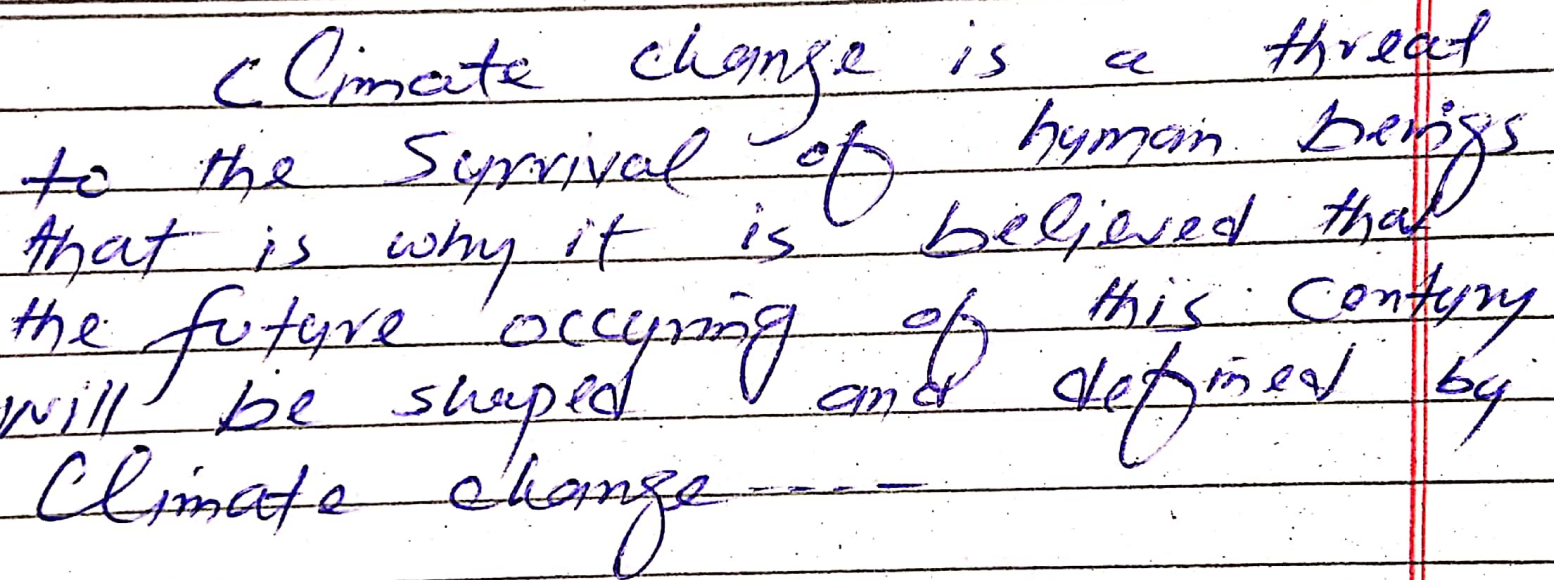 Climate change is a threat
to the survival of human beings
that is why it is believed that
the future occuring of this century
will be shaped and defined by
Climate change ----